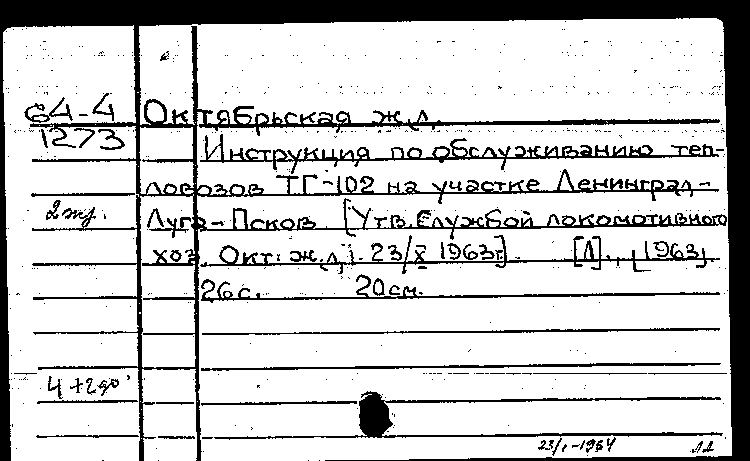 64-4 Октябрьская ж.д.
1273
Инструкция по обслуживанию теп-
ловозов ТГ-102 на участке Ленинград-
2 экз. Луга-Псков. [Утв. Службой локомотивного
хоз. Окт. ж.д. 23/X 1963г]. [Л]., [1963].
26с. 20см.
4+2
23/I-1964